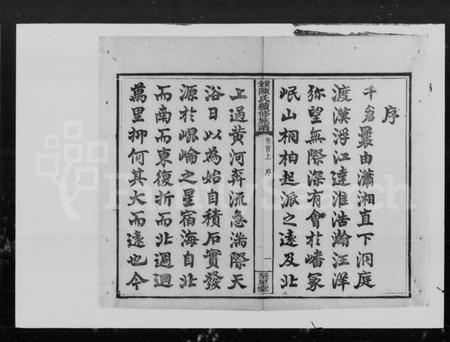 序
千倉曩由瀟湘直下洞庭
渡漢浮江達淮浩瀚汪洋
弥望無際深有會於嶓冢
岷山桐柏起派之遠及北
陳氏續修族譜
卷首上 序
一
聚星堂
上過黄河奔流急湍際天
浴日以為始自積石實發
源於崐崘之星宿海自北
而南而東復折而北週迴
萬里抑何其大而遠也今
FamilySearch